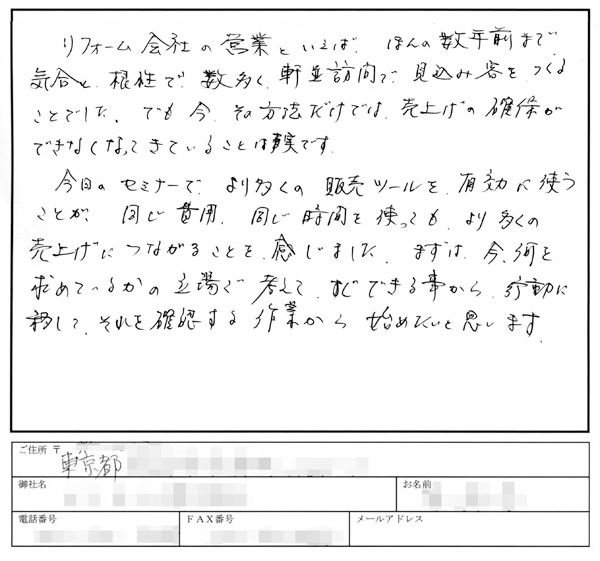 リフォーム会社の営業といえば、ほんの数年前まで
気合と、根性で、数多く、軒並訪問で、見込み客を、つくる
ことでした。でも今、その方法だけでは、売上げの確保が
できなくなってきていることは事実です。
今日のセミナーで、より多くの販売ツールを、有効に使う
ことが、同じ費用、同じ時間を使っても、より多くの
売上げにつながることを、感じました。まずは、今、何を
求めているかの立場で考えて、すぐできる事から、行動に
移して、それを確認する作業から始めたいと思います。
ご住所 〒
東京都
御社名
お名前
電話番号
FAX番号
メールアドレス